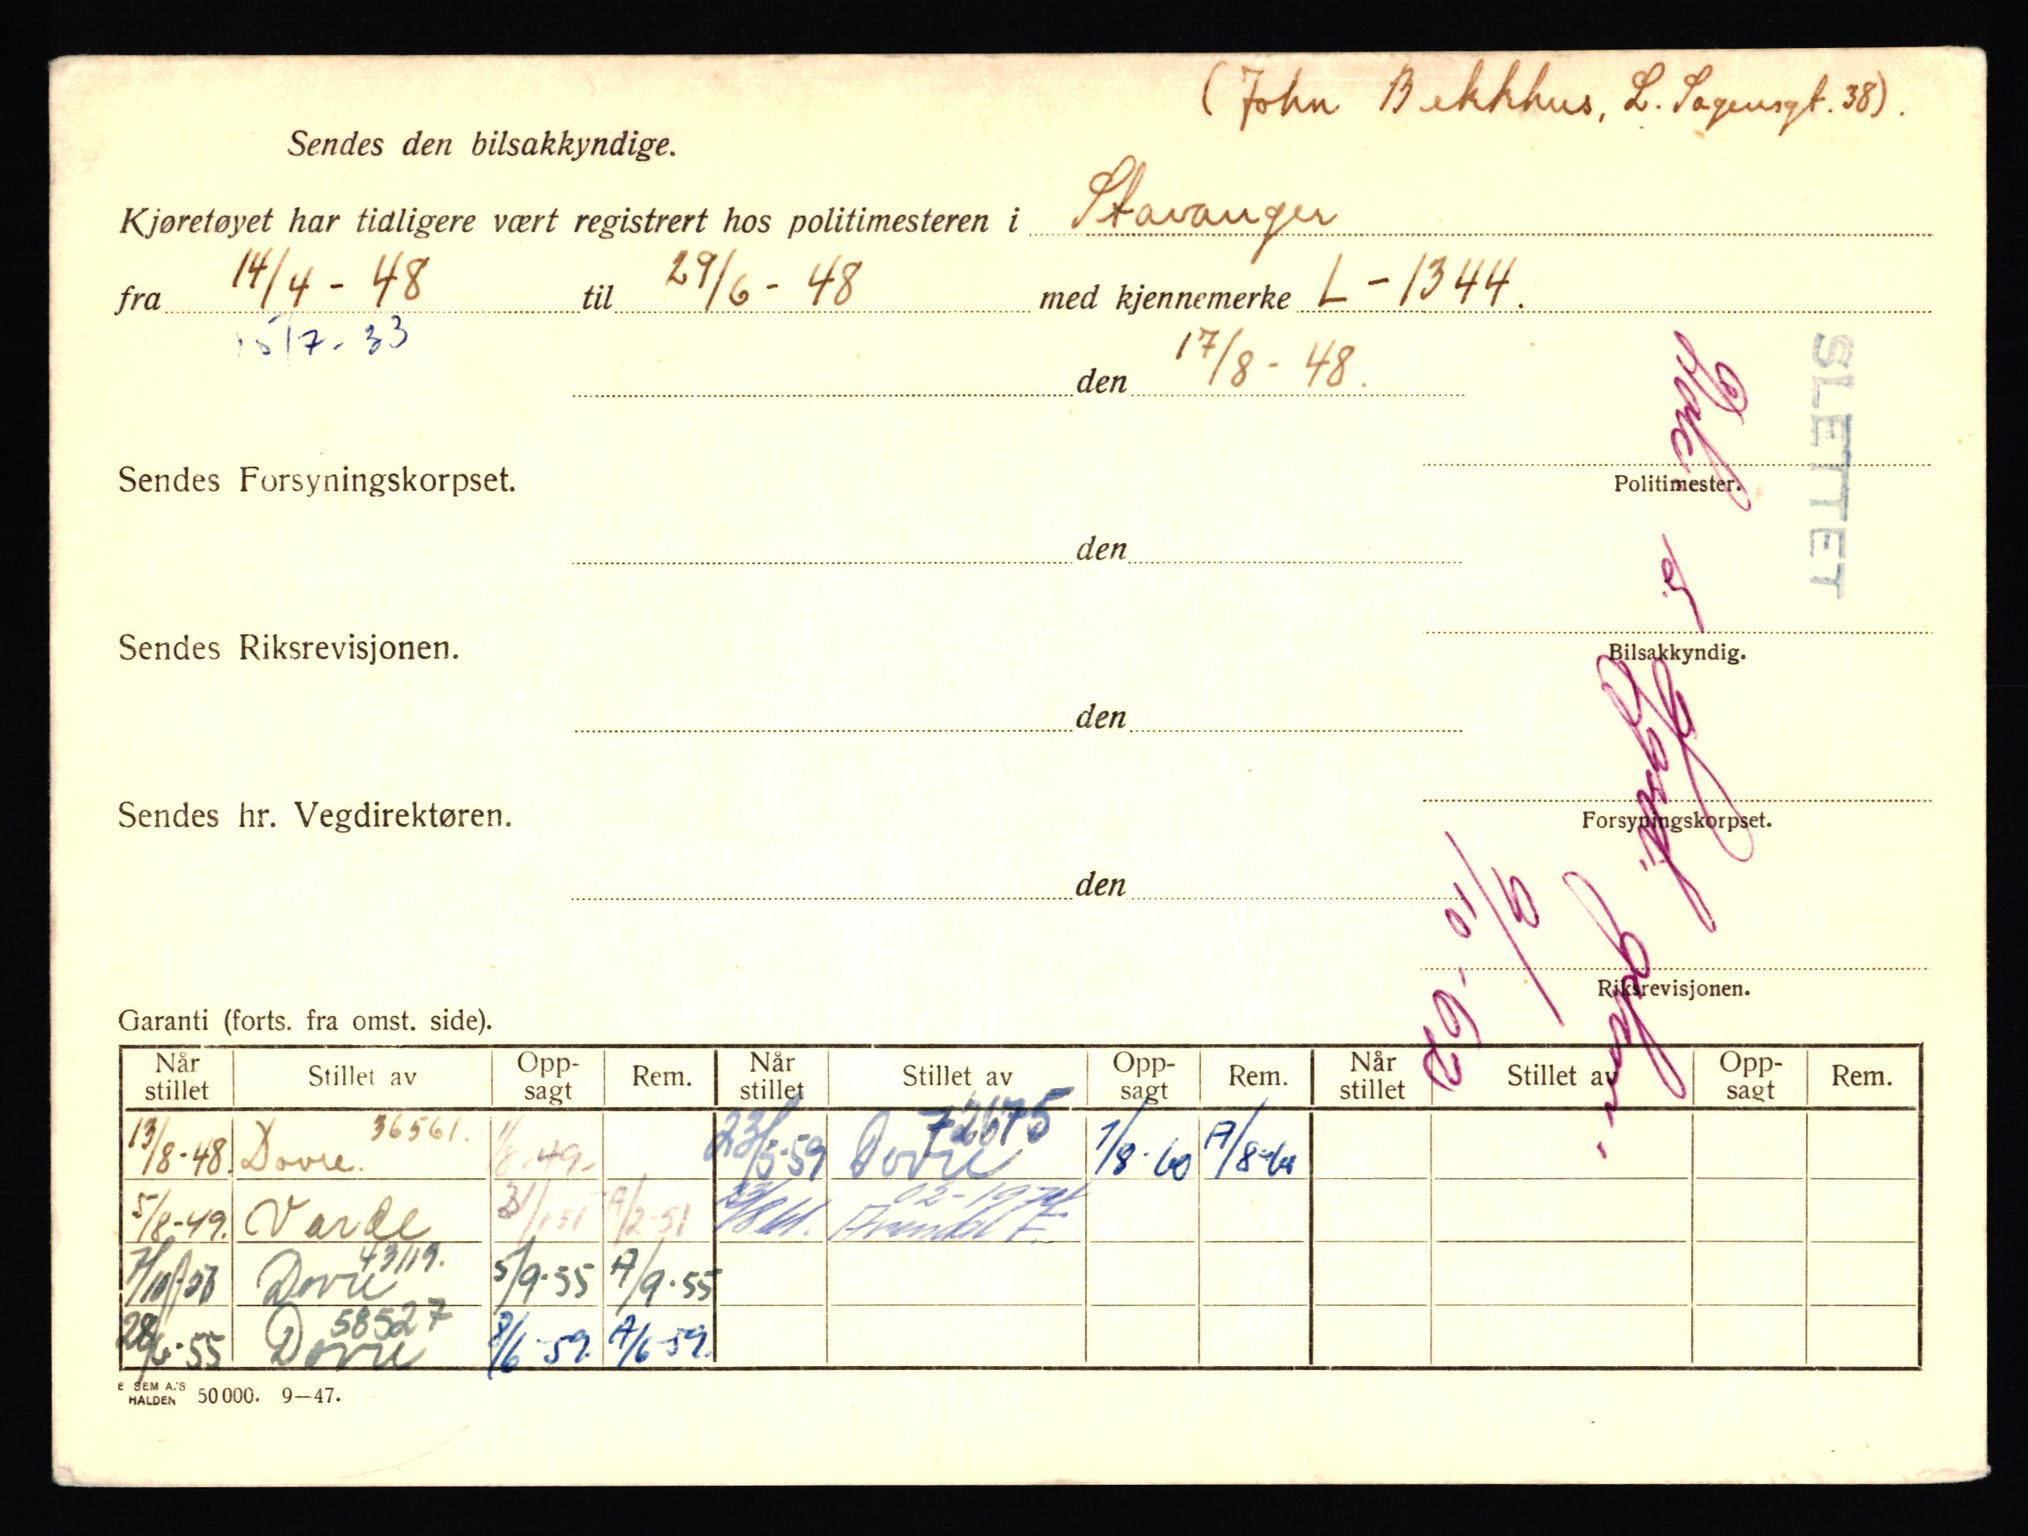 (John Bekkhus, L. Sagensgt. 38).
Sendes den bilsakkyndige.
Kjøretøyet har tidligere vært registrert hos politimesteren i Stavanger
fra 14/4 - 48 til 29/6 - 48 med kjennemerke L - 1344.
15/7 - 33
den 17/8 - 48.
SLETTET
Sendes Forsyningskorpset.
Politimester.
den
Sendes Riksrevisjonen.
Bilsakkyndig.
den
Sendes hr. Vegdirektøren.
Forsyningskorpset.
den
9/10 - 62
Riksrevisjonen.
Garanti (forts. fra omst. side).
Når stillet Stillet av Opp-sagt Rem. Når stillet Stillet av Opp-sagt Rem. Når stillet Stillet av Opp-sagt Rem.
13/8-48. Dovre. 36561. 1/8-49. 23/5-59 Dovre 72675 1/8-60 A/8-60
5/8-49. Varde 31/1-51 A/2-51 Arendal F.
Dovre 43119. 5/9-55 A/9-55
28/6-55 Dovre 58527 8/6-59. A/6-59.
E SEM A/S HALDEN 50 000. 9—47.